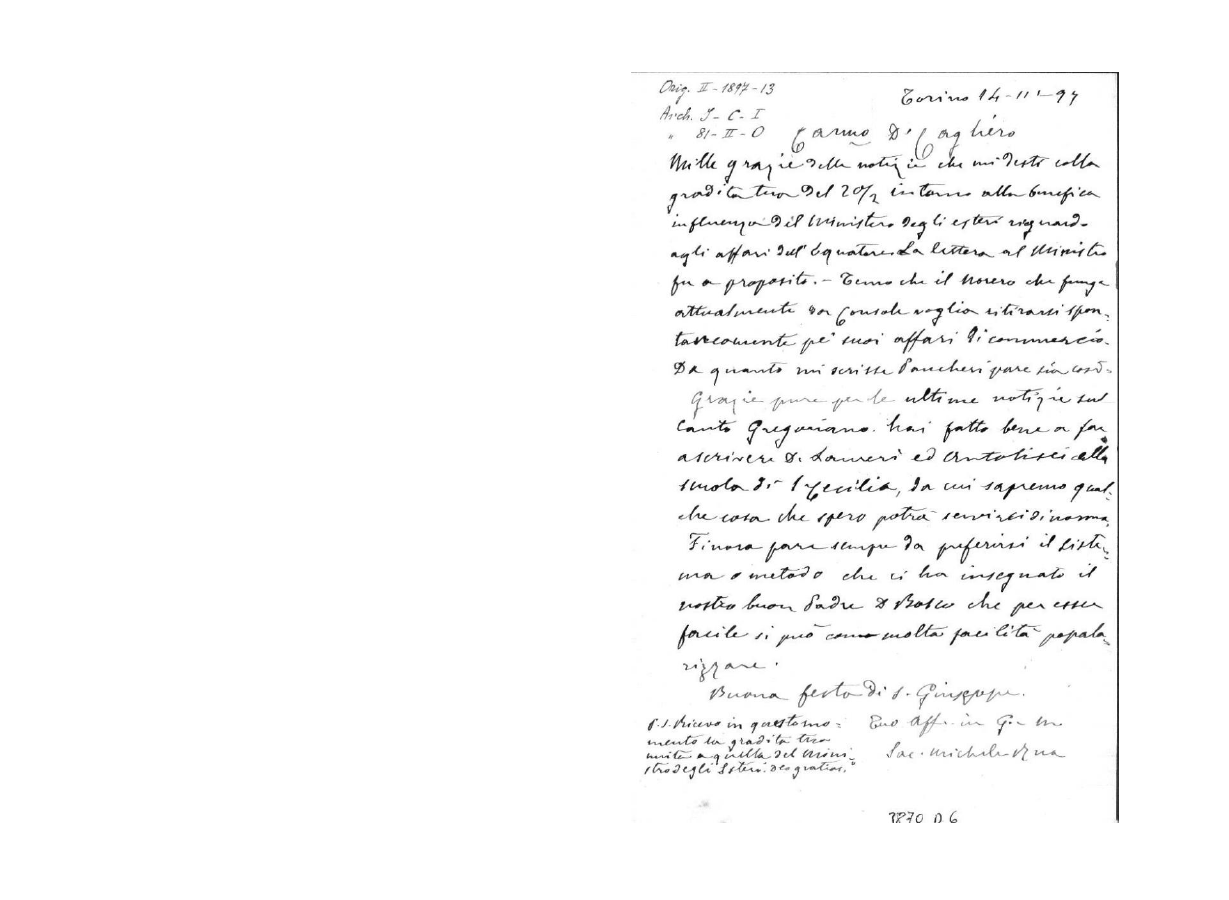 Orig. II-1897-13
Torino 14-III-97
Arch. S-C-I
" 81-II-O
Carmo D. Cagliero
Mille grazie delle notizie che mi desti colla
gradita tua del 20/2 intorno alla benefica
influenza del Ministero degli esteri riguardo
agli affari dell'Equatore. La lettera al Ministro
fu a proposito. - Temo che il Norero che funge
attualmente da Console voglia ritirarsi spon-
taneamente pe' suoi affari di commercio.
Da quanto mi scrisse pare sia così.
Grazie pure per le ultime notizie sul
Canto Gregoriano. hai fatto bene a far
ascrivere D. ed Antolisei alla
scuola di S. Cecilia, da cui sapremo qual-
che cosa che spero potrà servirci di norma.
Finora pare sempre da preferirsi il siste-
ma o metodo che ci ha insegnato il
nostro buon Padre D Bosco che per esser
facile si può con molta facilità popola-
rizzare.
Buona festa di S. Giuseppe.
Tuo Aff. in G. e M.
Sac. Michele Rua
P.S. Ricevo in questo mo=
mento la gradita tua
unita a quella del Mini-
stro degli Esteri. Deo gratias.
3870 D 6